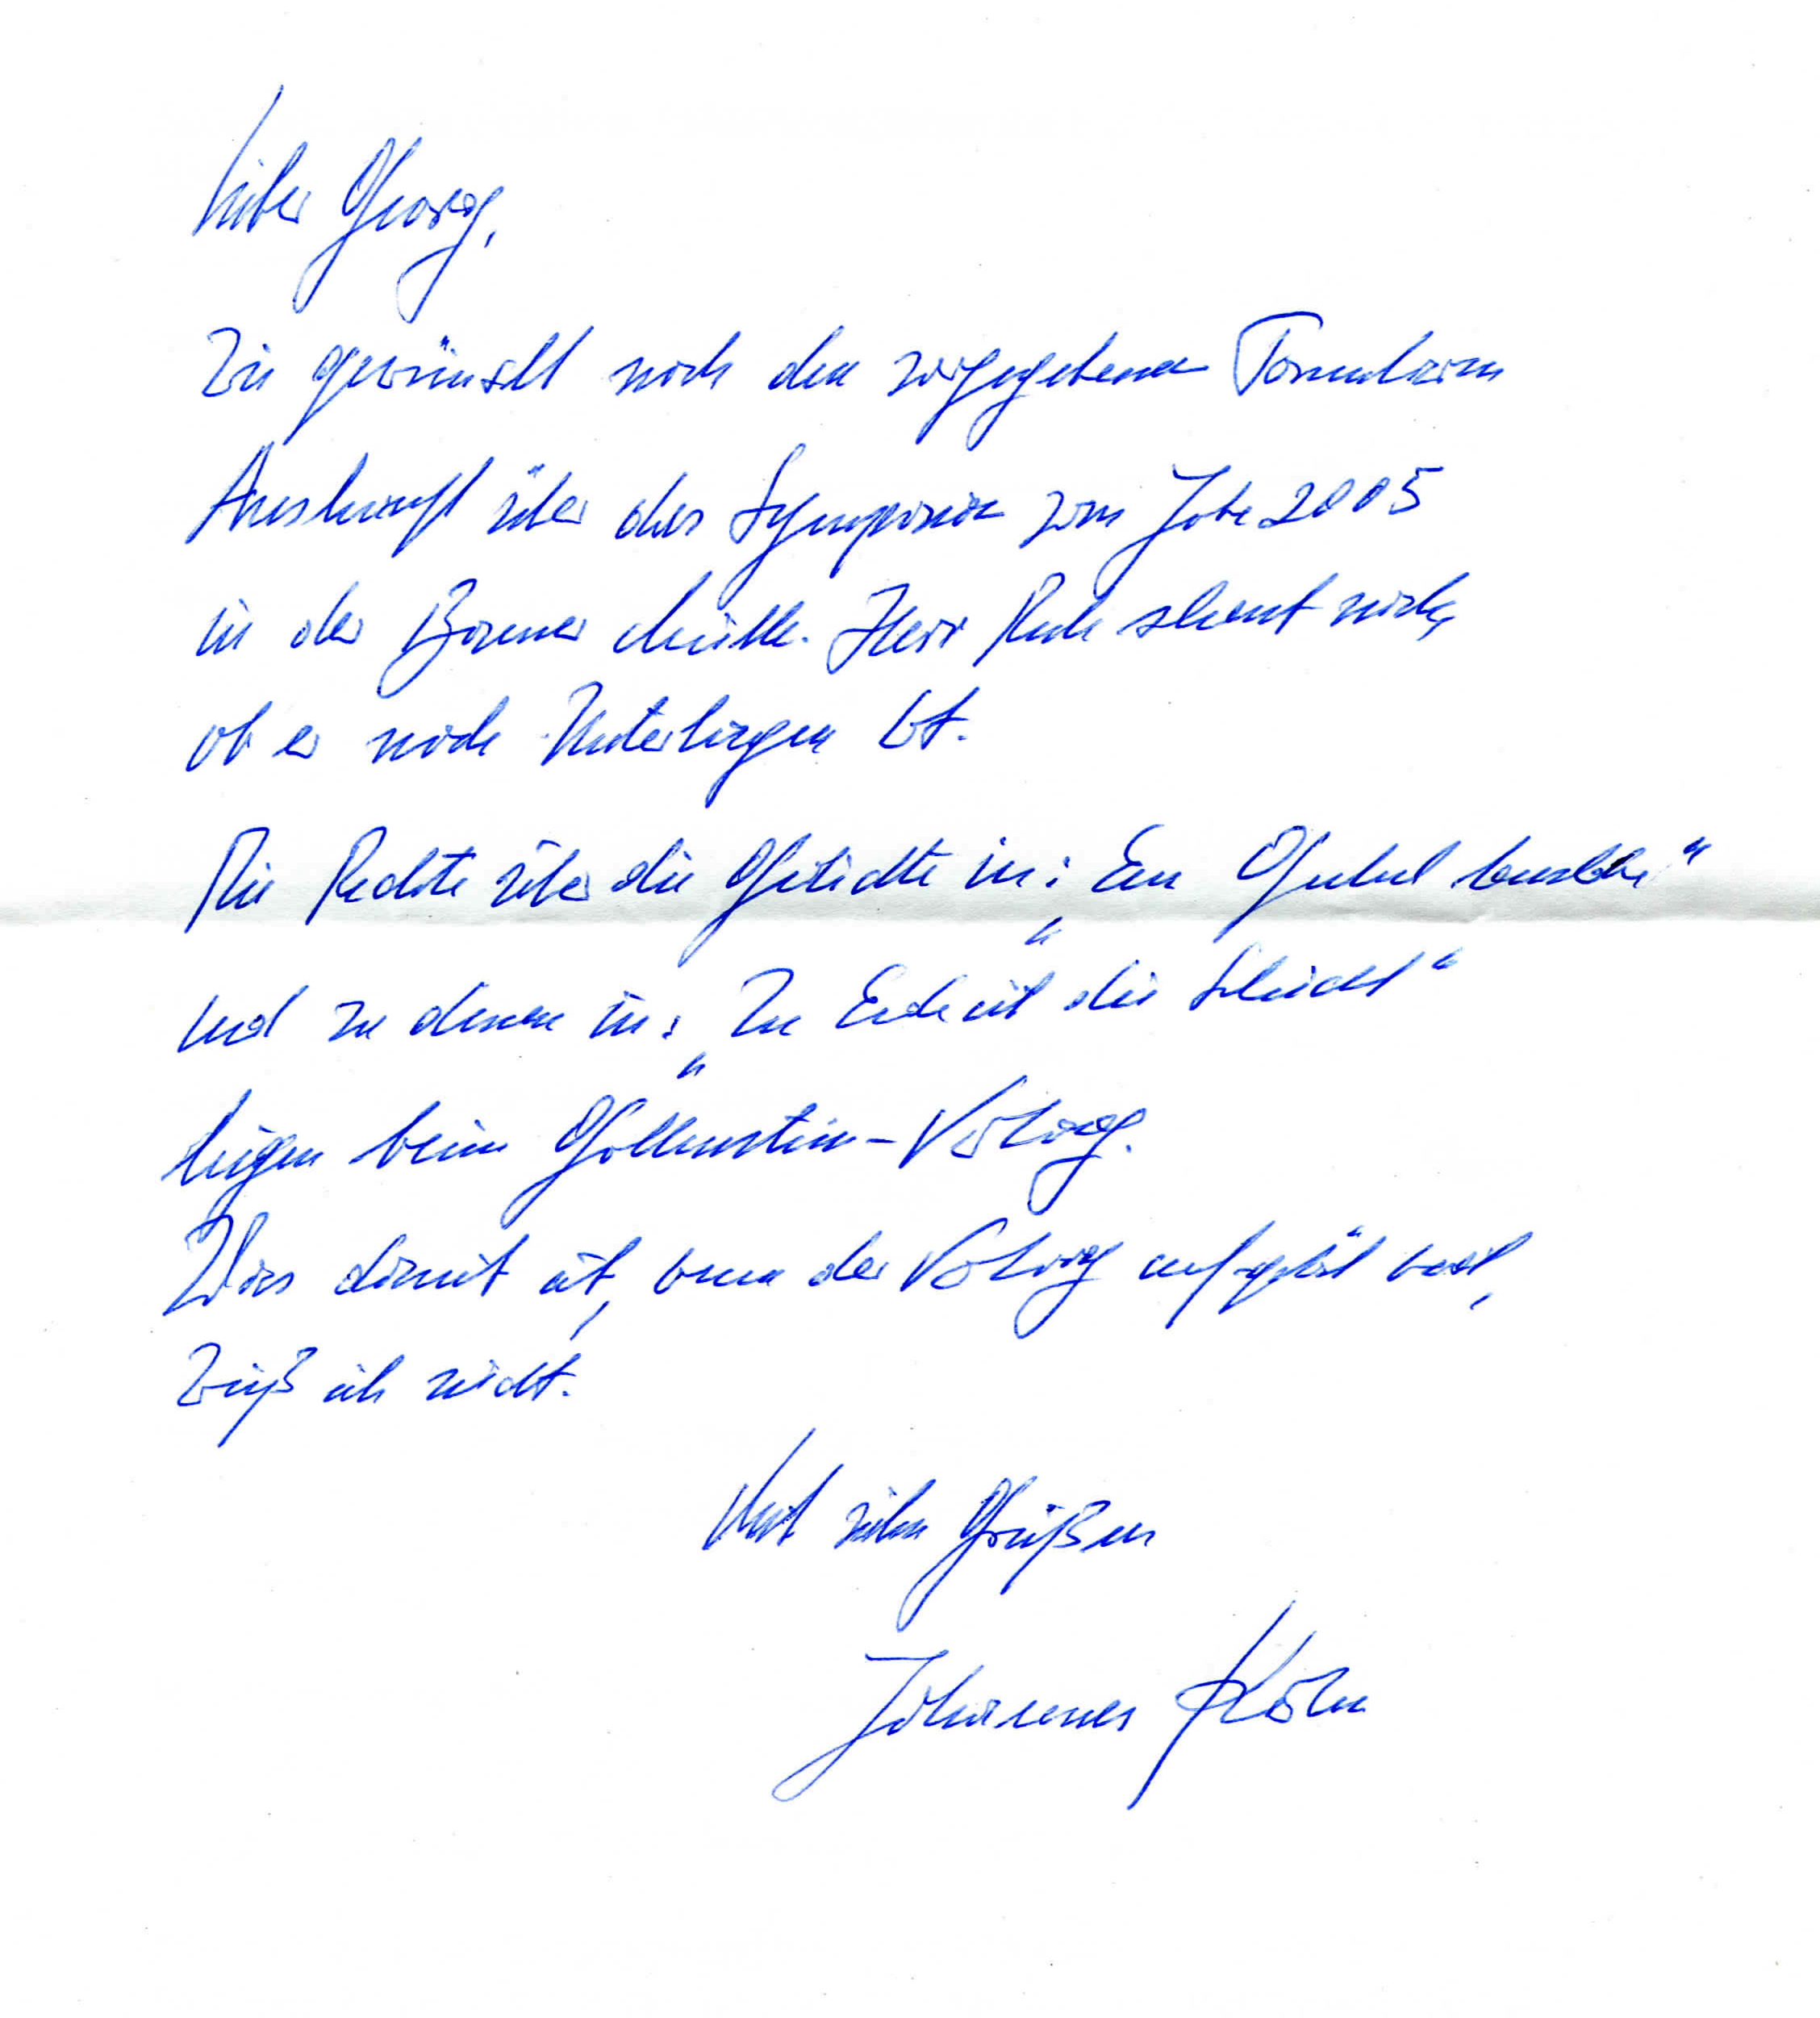 Lieber Georg,
Wie gewünscht noch den vorgegebenen Formularen
Auskunft über das Symposion zum Jahre 2005
in der Bonner Hütte. Herr Ruh schaut nach,
ob er noch Unterlagen hat.
Die Rechte über die Gedichte in: „Ein
und zu denen in: „Zu Ende ist die Schicht“
liegen beim Gollenstein-Verlag.
Was damit ist, wenn der Verlag aufgelöst wird,
weiß ich nicht.
Mit vielen Grüßen
Johannes Kühn